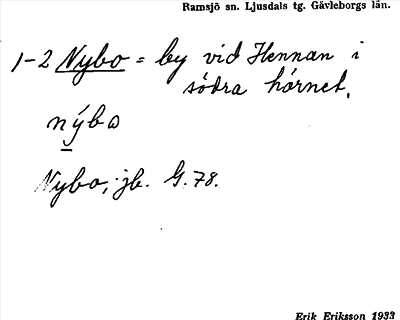 Ramsjö sn. Ljusdals tg. Gävleborgs län.
1-2 Nybo = by vid Hennan i
södra hörnet.
nýbo
Nybo, jb. G. 78.
Erik Eriksson 1933